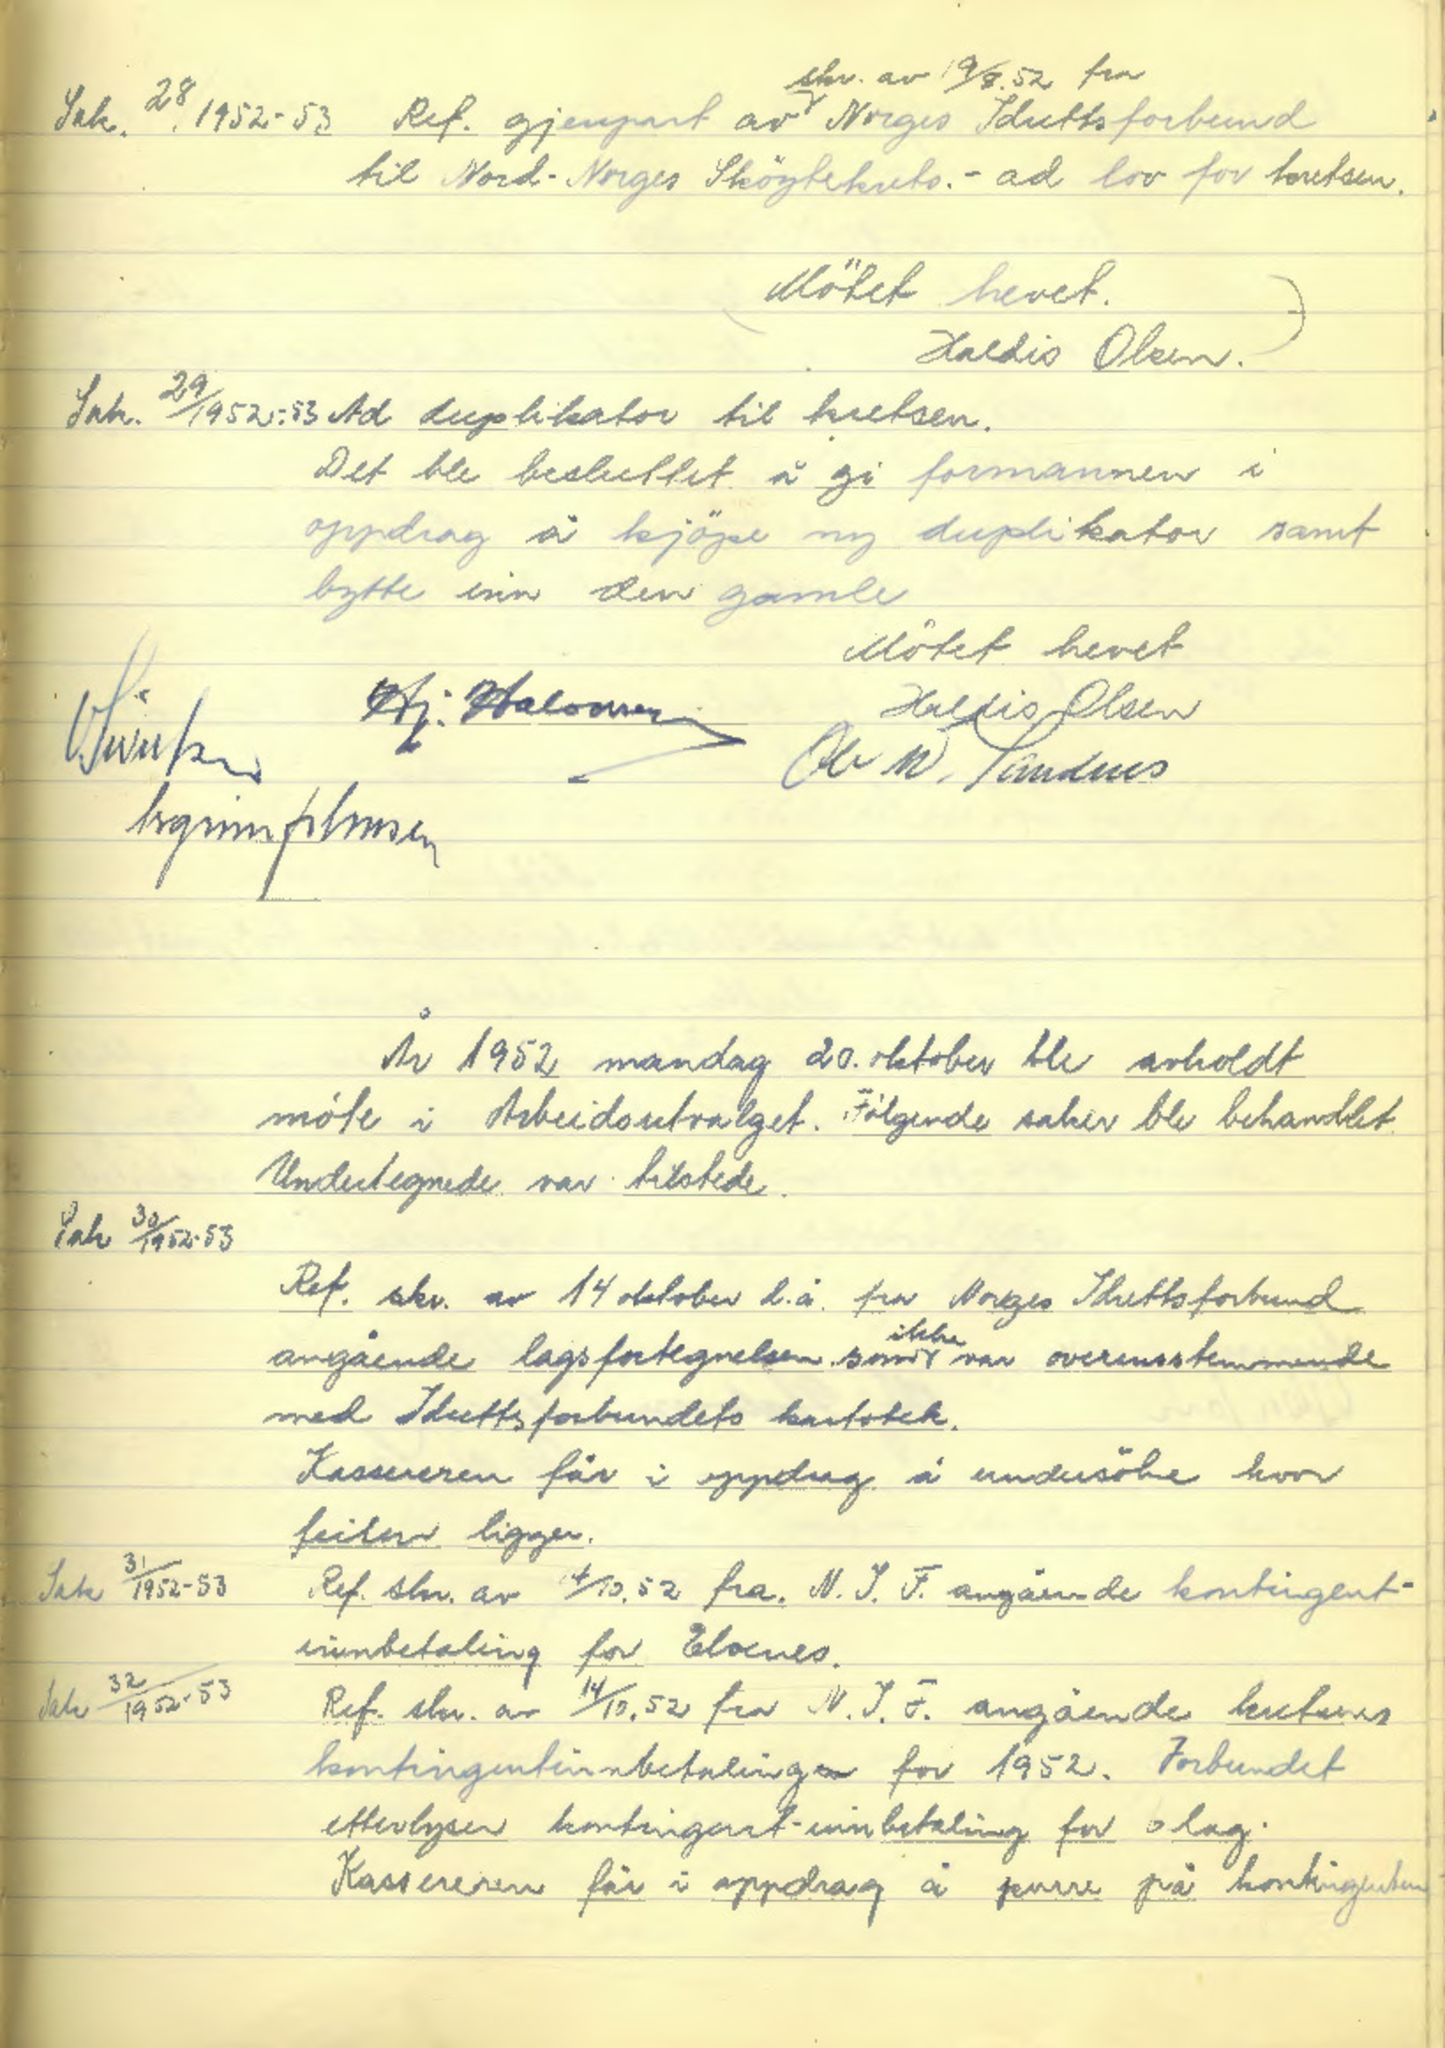 skr. av 19/8.52 fra
Sak. 28. 1952-53 Ref. gjenpart av Norges Idrettsforbund
til Nord-Norges Sköytekrets.- ad lov for kretsen.
Mötet hevet.
Haldis Olsen.
Sak. 29/1952-53 Ad duplikator til kretsen.
Det ble besluttet å gi formannen i
oppdrag å kjöpe ny duplikator samt
bytte inn den gamle
Mötet hevet
Hj. Halvorsen Haldis Olsen
Ole M. Sandnes
År 1952 mandag 20. oktober ble avholdt
möte i Arbeidsutvalget. Fölgende saker ble behandlet.
Undertegnede var tilstede.
Sak 30/1952-53
Ref. skr. av 14 oktober d.å. fra Norges Idrettsforbund
ikke
angående lagsfortegnelsen som var overensstemmende
med Idrettsforbundets kartotek.
Kassereren får i oppdrag å undersöke hvor
feilen ligger.
Sak 31/1952-53 Ref. skr. av 14/10.52 fra. N. I. F. angående kontingent-
innbetaling for Elvenes.
Sak 32/1952-53 Ref. skr. av 14/10.52 fra N. I. F. angående kretsens
kontingentinnbetalingen for 1952. Forbundet
etterlyser kontingent-innbetaling for lag.
Kassereren får i oppdrag å purre på kontingenten